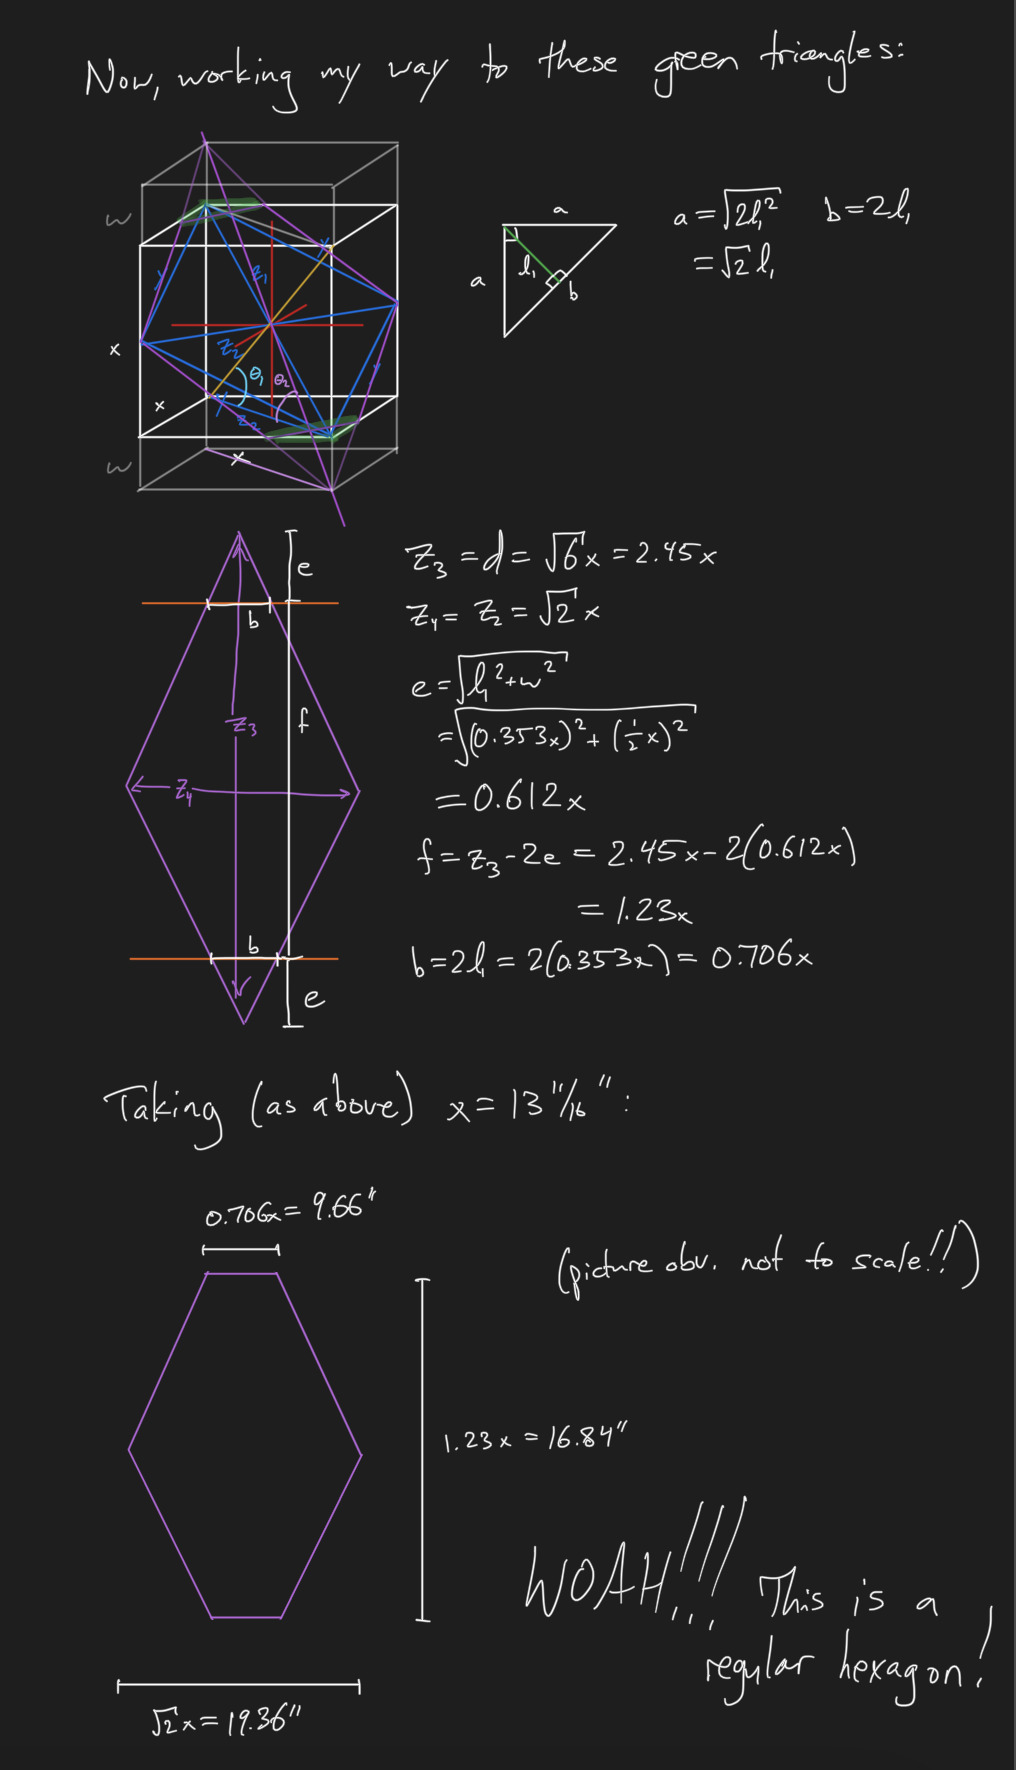 Now, working my way to these green triangles:
w
x
x
w
x
y
z₁
y
z₂
θ₁
θ₂
y
y
z₂
a
a
l₁
b
a = √2l₁²
b = 2l₁
= √2 l₁
e
b
f
z₃
z₄
b
e
z₃ = d = √6 x = 2.45x
z₄ = z₂ = √2 x
e = √l₁² + w²
= √(0.353x)² + (½x)²
= 0.612x
f = z₃ - 2e = 2.45x - 2(0.612x)
= 1.23x
b = 2l₁ = 2(0.353x) = 0.706x
Taking (as above) x = 13 11/16":
0.706x = 9.66"
(picture obv. not to scale!!)
1.23x = 16.84"
WOAH!!! This is a
regular hexagon!
√2 x = 19.36"